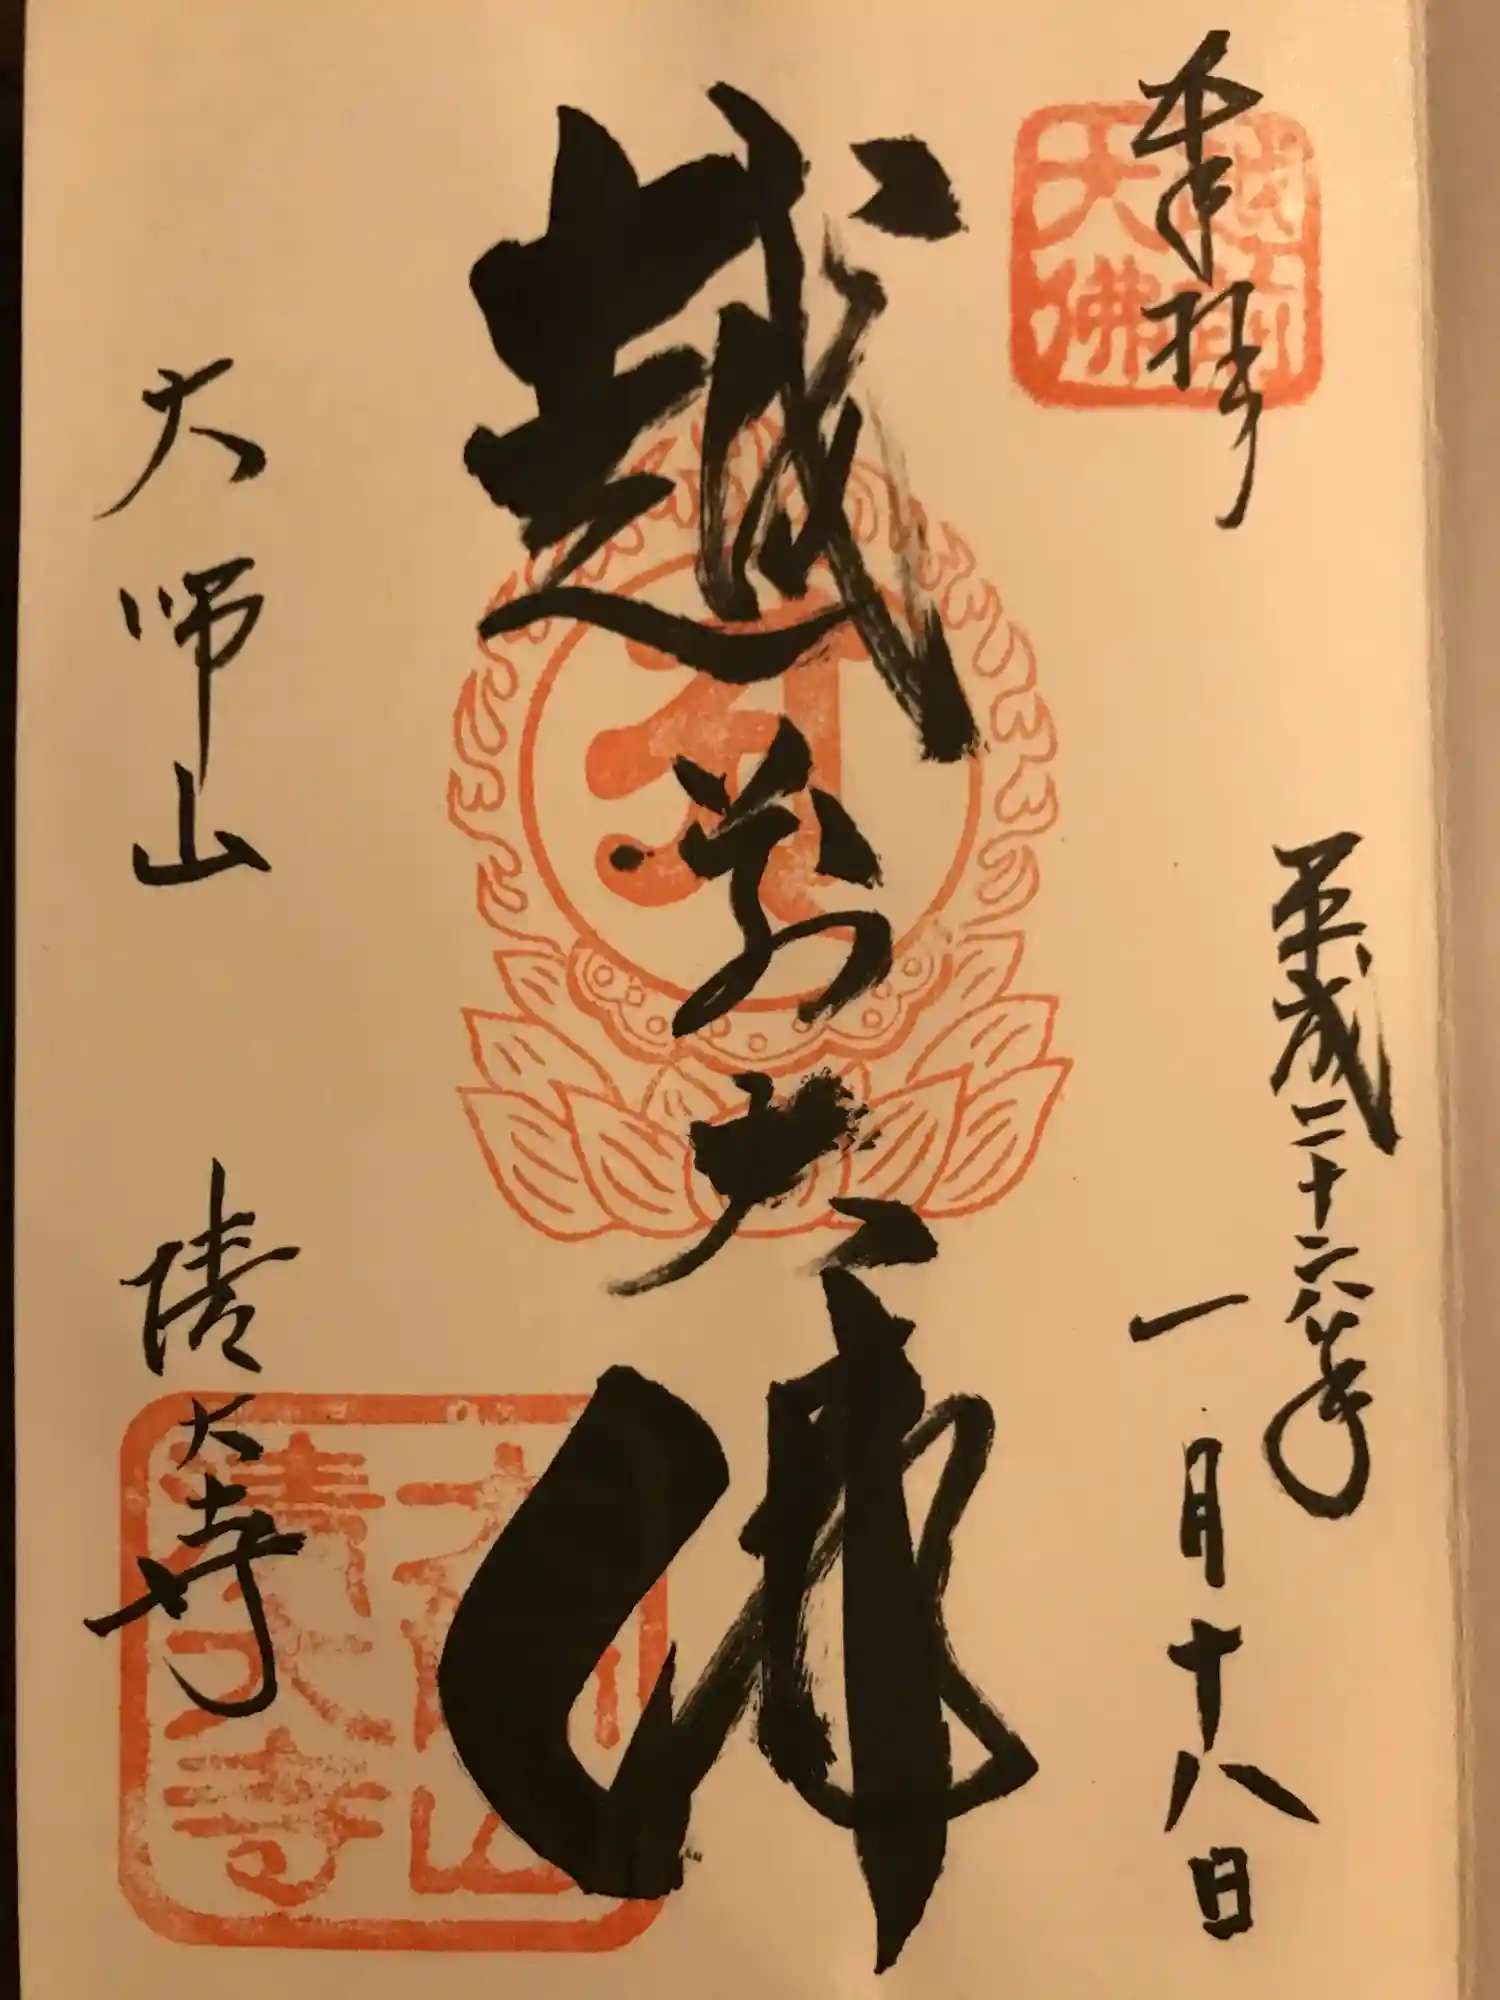 奉拝
越前
大佛
平成二十六年
一月十八日
越前大佛
大師山 清大寺
大師山
清大寺